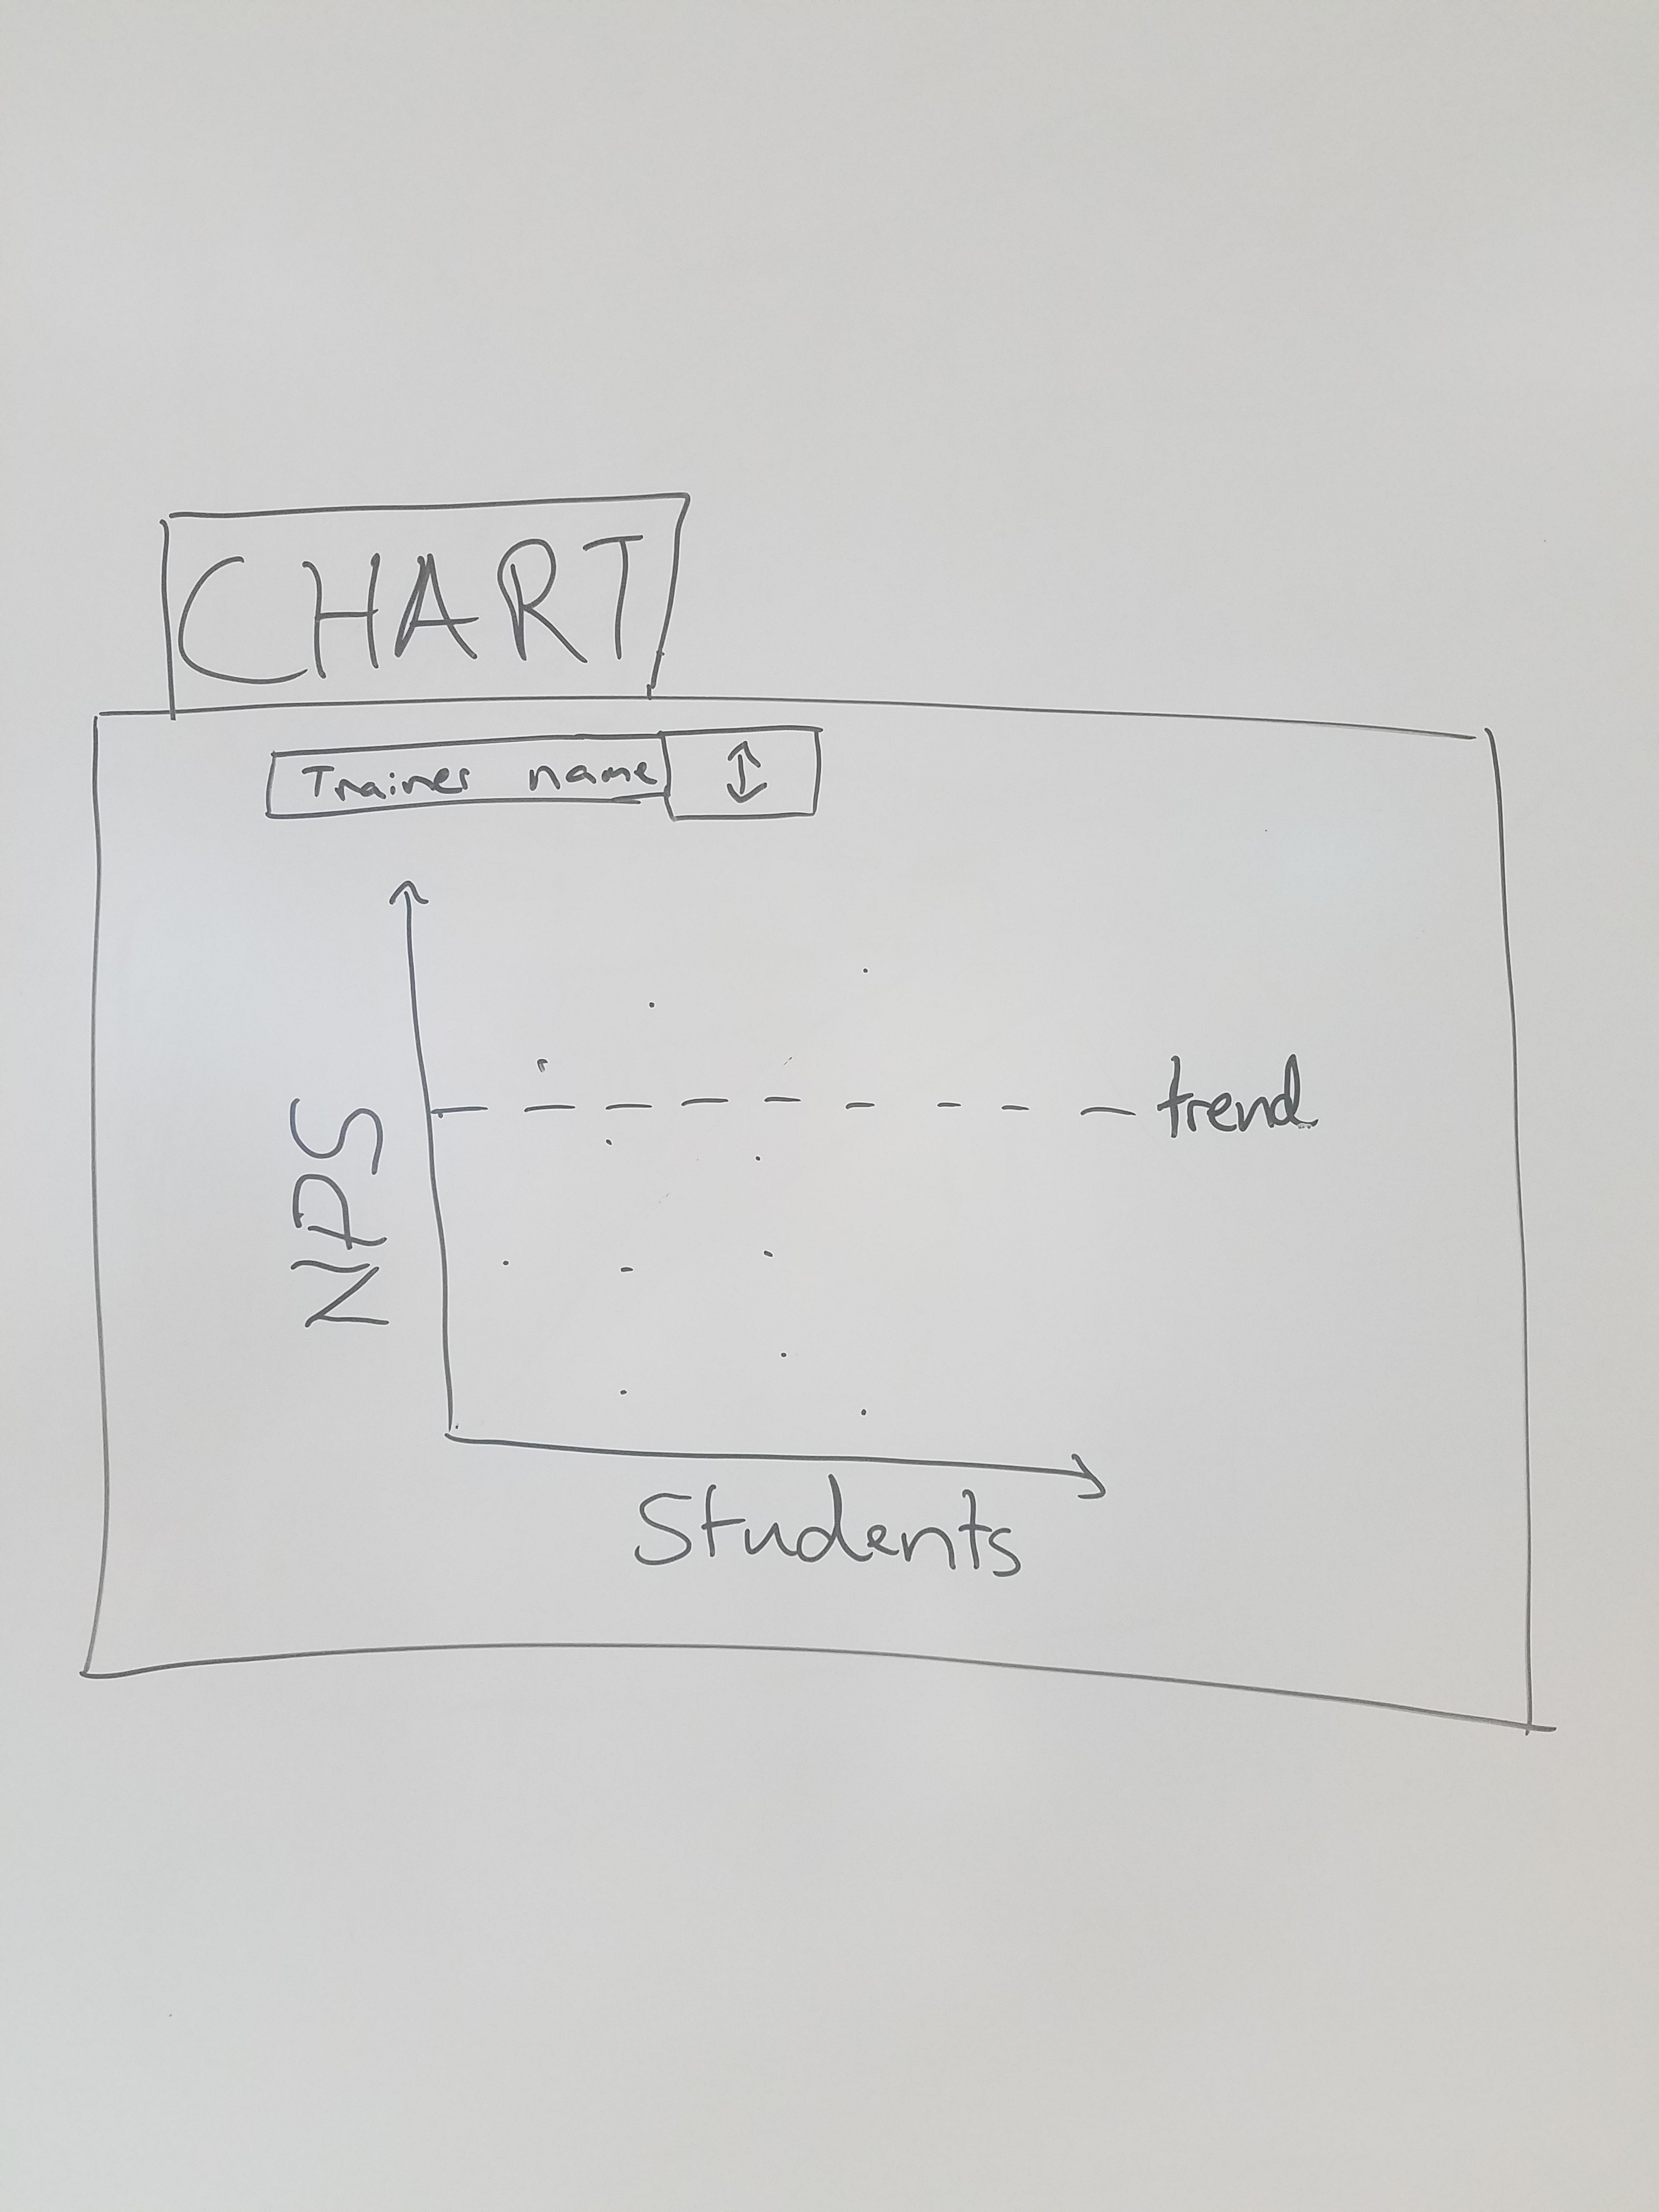 CHART
Trainer name
trend
NPS
Students